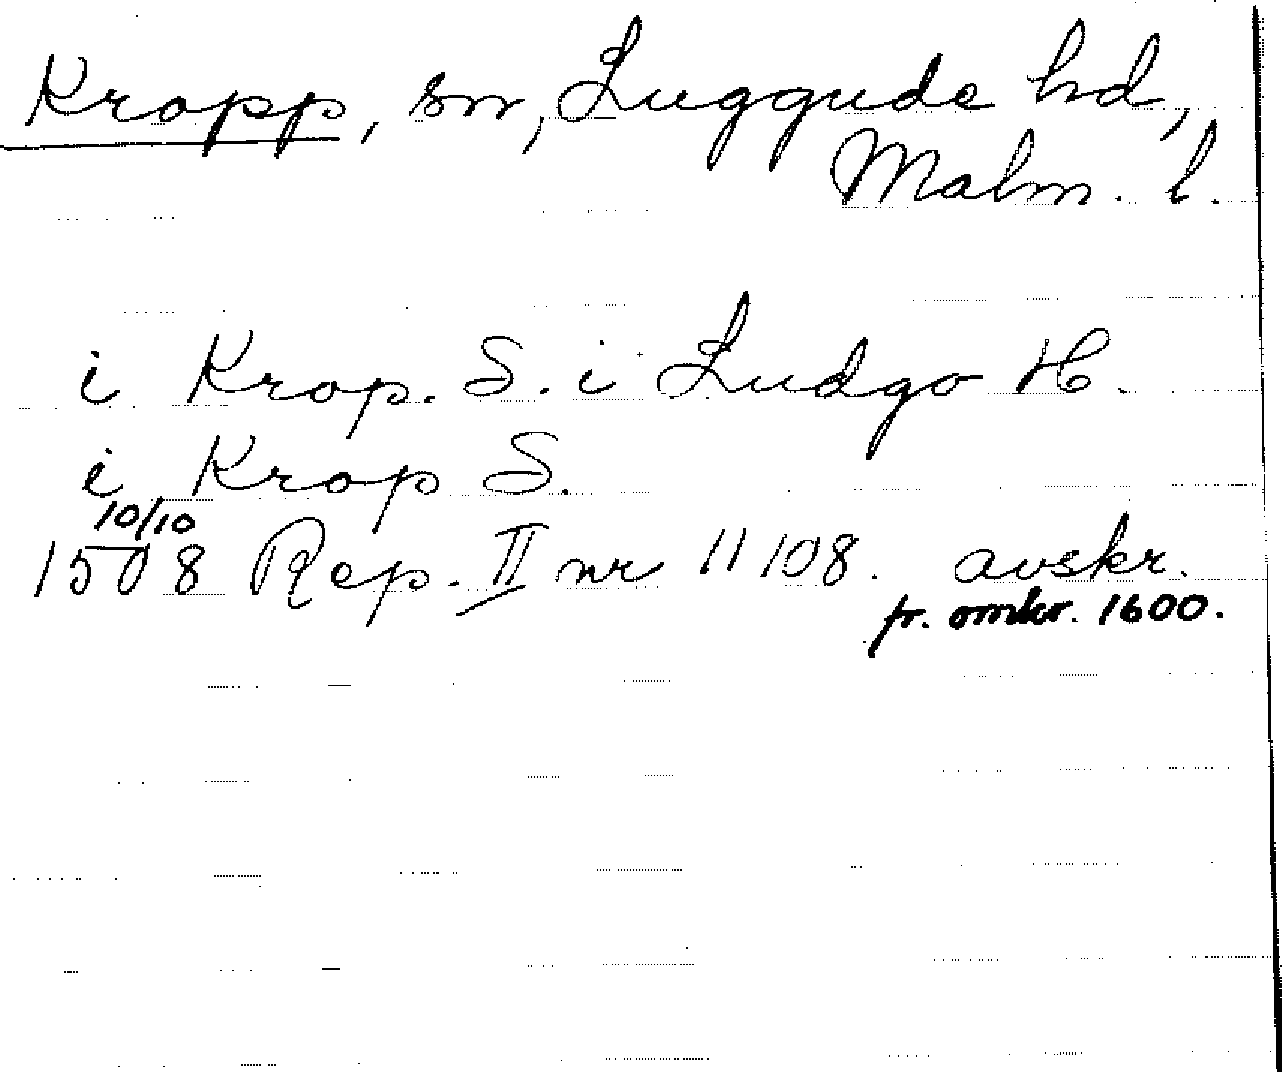 Kropp, sn, Luggude hd,
Malm. l.
i Krop. S. i Ludgo H.
i Krop S.
10/10
1508 Rep. II nr 11108. avskr.
fr. omkr. 1600.